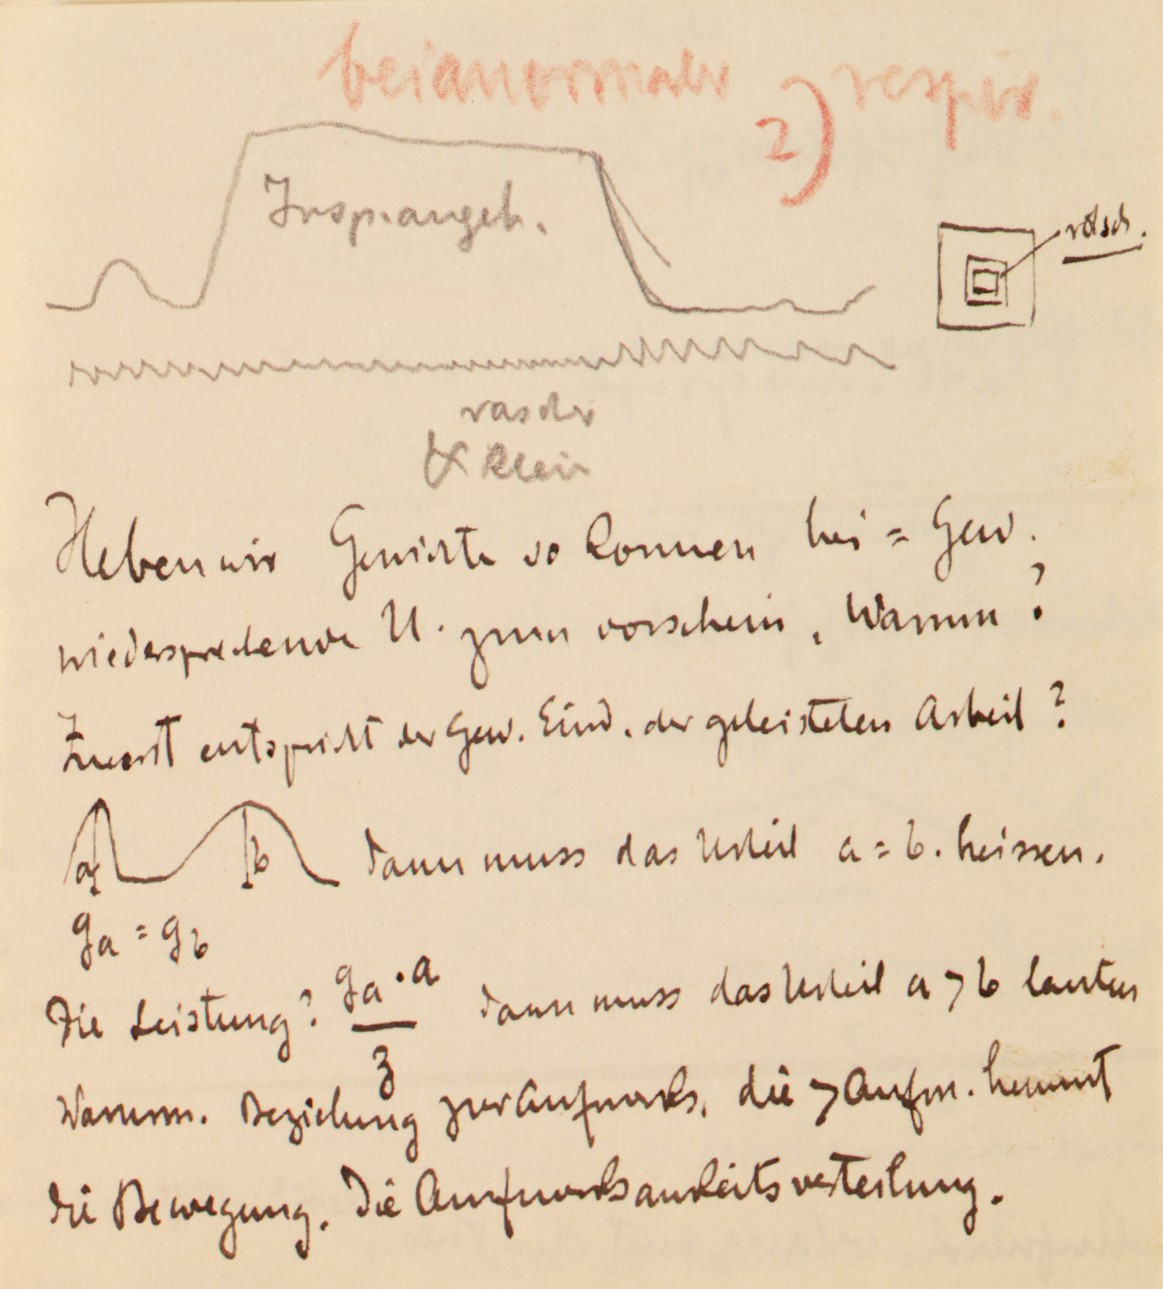 bei anormaler respir.
2)
Inspirangeh.
rasch.
rascher
& klein
Heben wir Gewichte so können bei = Gew.
wiedersprechende U. zum vorschein, Warum?
Zuerst entspricht der Gew. Eind. der geleisteten Arbeit?
a b dann muss das Urteil a = b. heissen.
ga = gb
Die Leistung? ga · a / z dann muss das Urteil a > b lauten
Warum. Beziehung zur Aufmerks. die > Aufm. hemmt
die Bewegung. Die Aufmerksamkeitsverteilung.